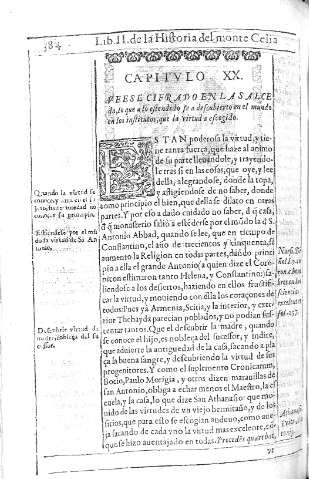 384
Lib. II. de la Historia del monte Celia
CAPITVLO XX.
VEESE CIFRADO EN LA SALCE
da, lo que a lo estendido se a descubierto en el mundo
en los institutos, que la virtud a escogido.
ES TAN poderosa la virtud, y tie
ne tanta fuerça, que haze al animo
de su parte llevandole, y trayendo
le tras si en las cosas, que oye, y lee
della, alegrandose, donde la topa,
y afligiendose de no saber, donde
tomo principio el bien, que della se dilato en otras
partes. Y por eso a dado cuidado no saber, d̃ q̃ casa,
q̃ monasterio salio a estẽderse por el mũdo la d̃ S.
Antonio Abbad, quando se lee, que en tiempo de
Constantino, el año de trecientos y cinquenta, se
aumento la Religion en todas partes, dãndo princi
pio a ella el grande Antonio (a quien dize el
estimaron tanto Helena, y Constantino)
dose a los desiertos, haziendo en ellos
car la virtud, y moviendo con ella los coraçones de
Armenia, Scitia, y la interior, y exte
rior Thebayda parecian poblados, y no podian
centar tantos. Que el descubrir la madre, quando
se conoce el hijo, es nobleça del sucessor, y indice,
que advierte la antiguedad de la casa, sacando a pla
ça la buena sangre, y descubriendo la virtud de sus
progenitores. Y como el suplemento Cronicarum,
Bocio, Paulo Morigia, y otros dizen maravillas de
san Antonio, obliga a echar menos el Maestro, la es
cuela, y la casa, lo que dize San Athanasio: que mo
vido de las virtudes de un viejo hermitaño, y de los
que para esto se escogian
ja sacando de cada uno la virtud mas excelente, con
que se hizo aventajado en todas.
Quando la virtud se
no
noce, y su principio.
Estiendese por el mũ
do la virtud de S. An
tonio.
Descubrir virtud de
madre, nobleça del hi
jo es.